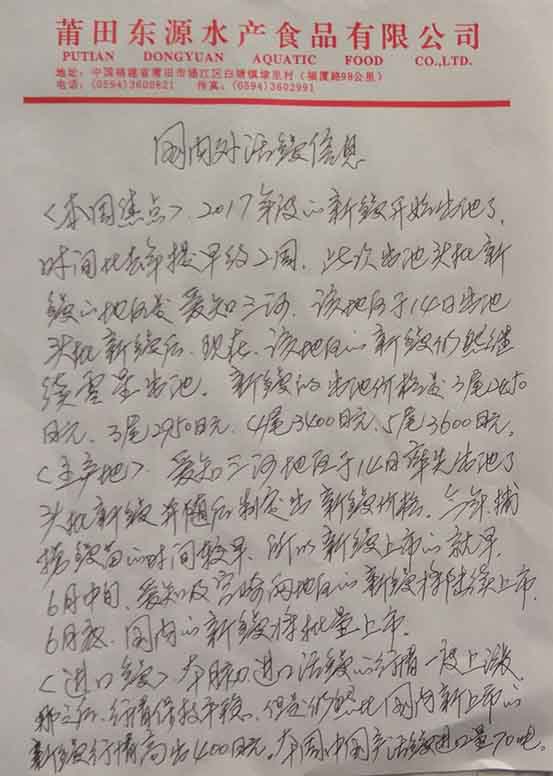 莆田东源水产食品有限公司
PUTIAN DONGYUAN AQUATIC FOOD CO.,LTD.
地址：中国福建省莆田市涵江区白塘镇埭里村（福厦路98公里）
电话：(0594)3600821 传真：(0594)3602991
国内对活鳗信息
〈本周焦点〉、2017年度的新鳗开始出池了，
时间比去年提早约2周，此次出池头批新
鳗的地区是爱知三河，该地区于14日出池
头批新鳗后，现在，该地区的新鳗仍然继
续零星出池。新鳗的出池价格是3尾2450
日元、3尾2950日元、4尾3400日元、5尾3600日元。
〈主产地〉、爱知三河地区于14日率先出池了
头批新鳗并随后制定出新鳗价格，今年捕
捞鳗苗的时间较早、所以新鳗上市的就早，
6月中旬、爱知及宫崎两地区的新鳗将陆续上市，
6月底、国内的新鳗将批量上市。
〈进口鳗〉本月初进口活鳗的行情一度上涨，
那之后、行情保持平稳，但是仍然比国内新上市的
新鳗行情高出400日元。本周中国产活鳗进口量70吨。